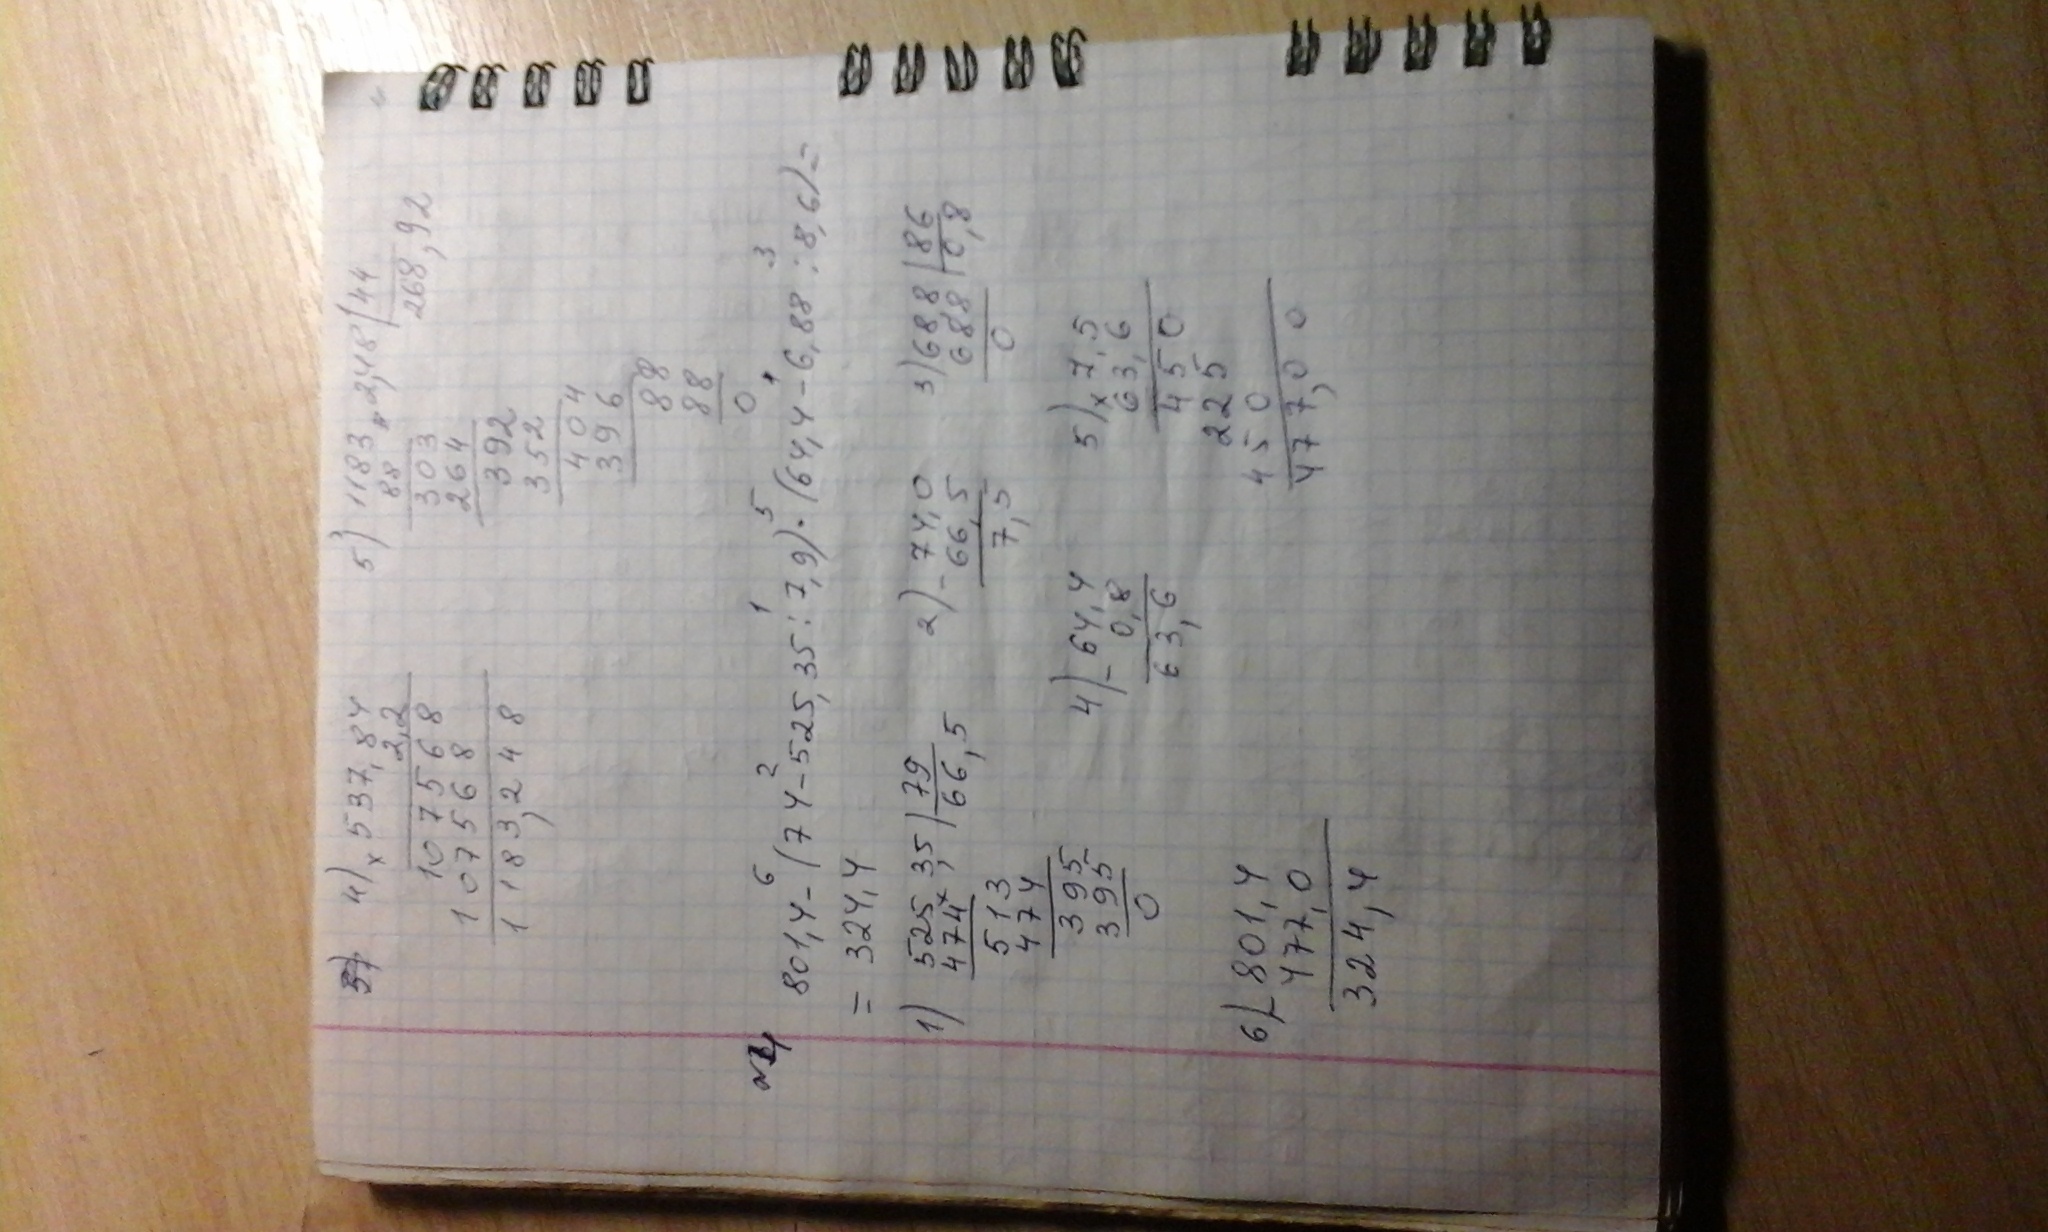 4) × 537,84 5) 1183,2,48 | 44
2,2 88 268,92
107568 303
107568 264
1183,248 392
352
404
396
88
88
0
№4
6 2 1 5 4 3
801,4-(74-525,35:7,9)·(64,4-6,88:8,6)=
= 324,4
1) 525,3,5 | 79 2) - 74,0 3) 68,8 | 86
474 66,5 66,5 688 0,8
513 7,5 0
474
395
395
0
4) - 64,4 5) × 7,5
0,8 63,6
63,6 450
225
450
477,00
6) - 801,4
477,0
324,4